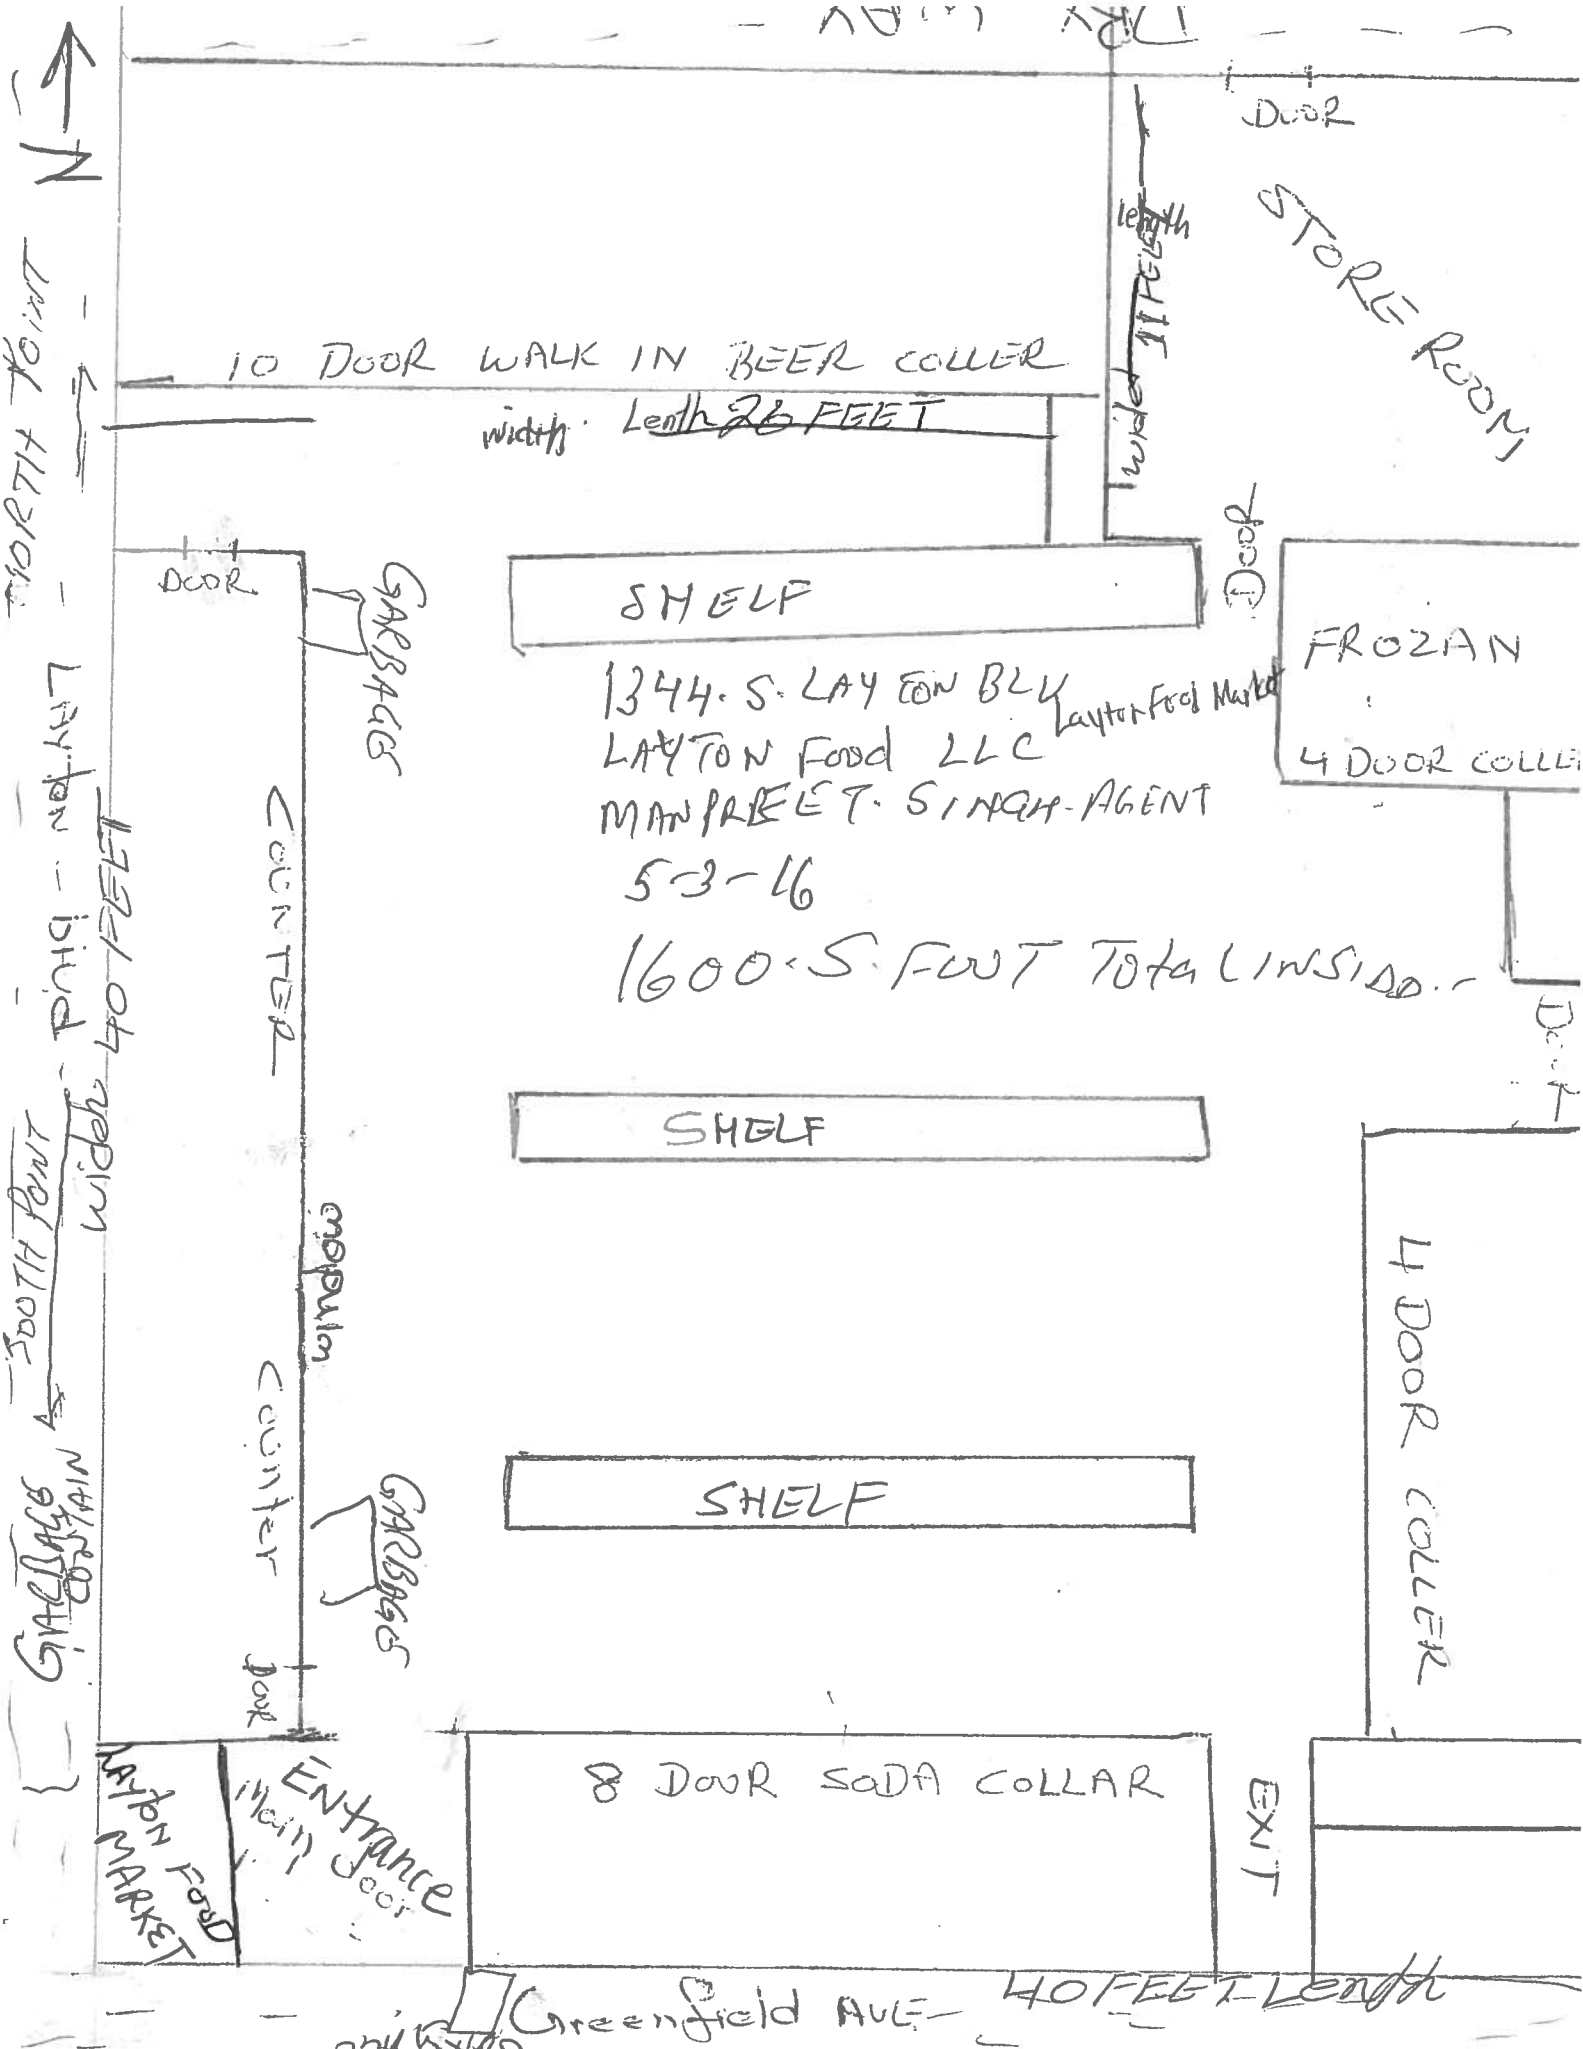 WAY
N
DOOR
STORE ROOM
length
11 FEET
wideh
NORTH POINT
10 DOOR WALK IN BEER COLLER
width. Lenth 26 FEET
DOOR
DOOR
GARBAGE
SHELF
FROZAN
4 DOOR COLLE
1344. S. LAYTON BLV
Layton Food Market
LAYTON Food LLC
MANPREET. SINGH-AGENT
5-3-16
1600. S. FOOT Total INSIDD.-
LAYTON
wideh 40 FEET
COUNTER
SHELF
window
SOUTH POINT
4 DOOR COLLER
Counter
SHELF
GARBAGE
GARBAGE
CONTAIN
Door
LAYTON FOOD
MARKET
ENtrance
Main door
8 DOOR SODA COLLAR
EXIT
Greenfield AVE-
40 FEET Length